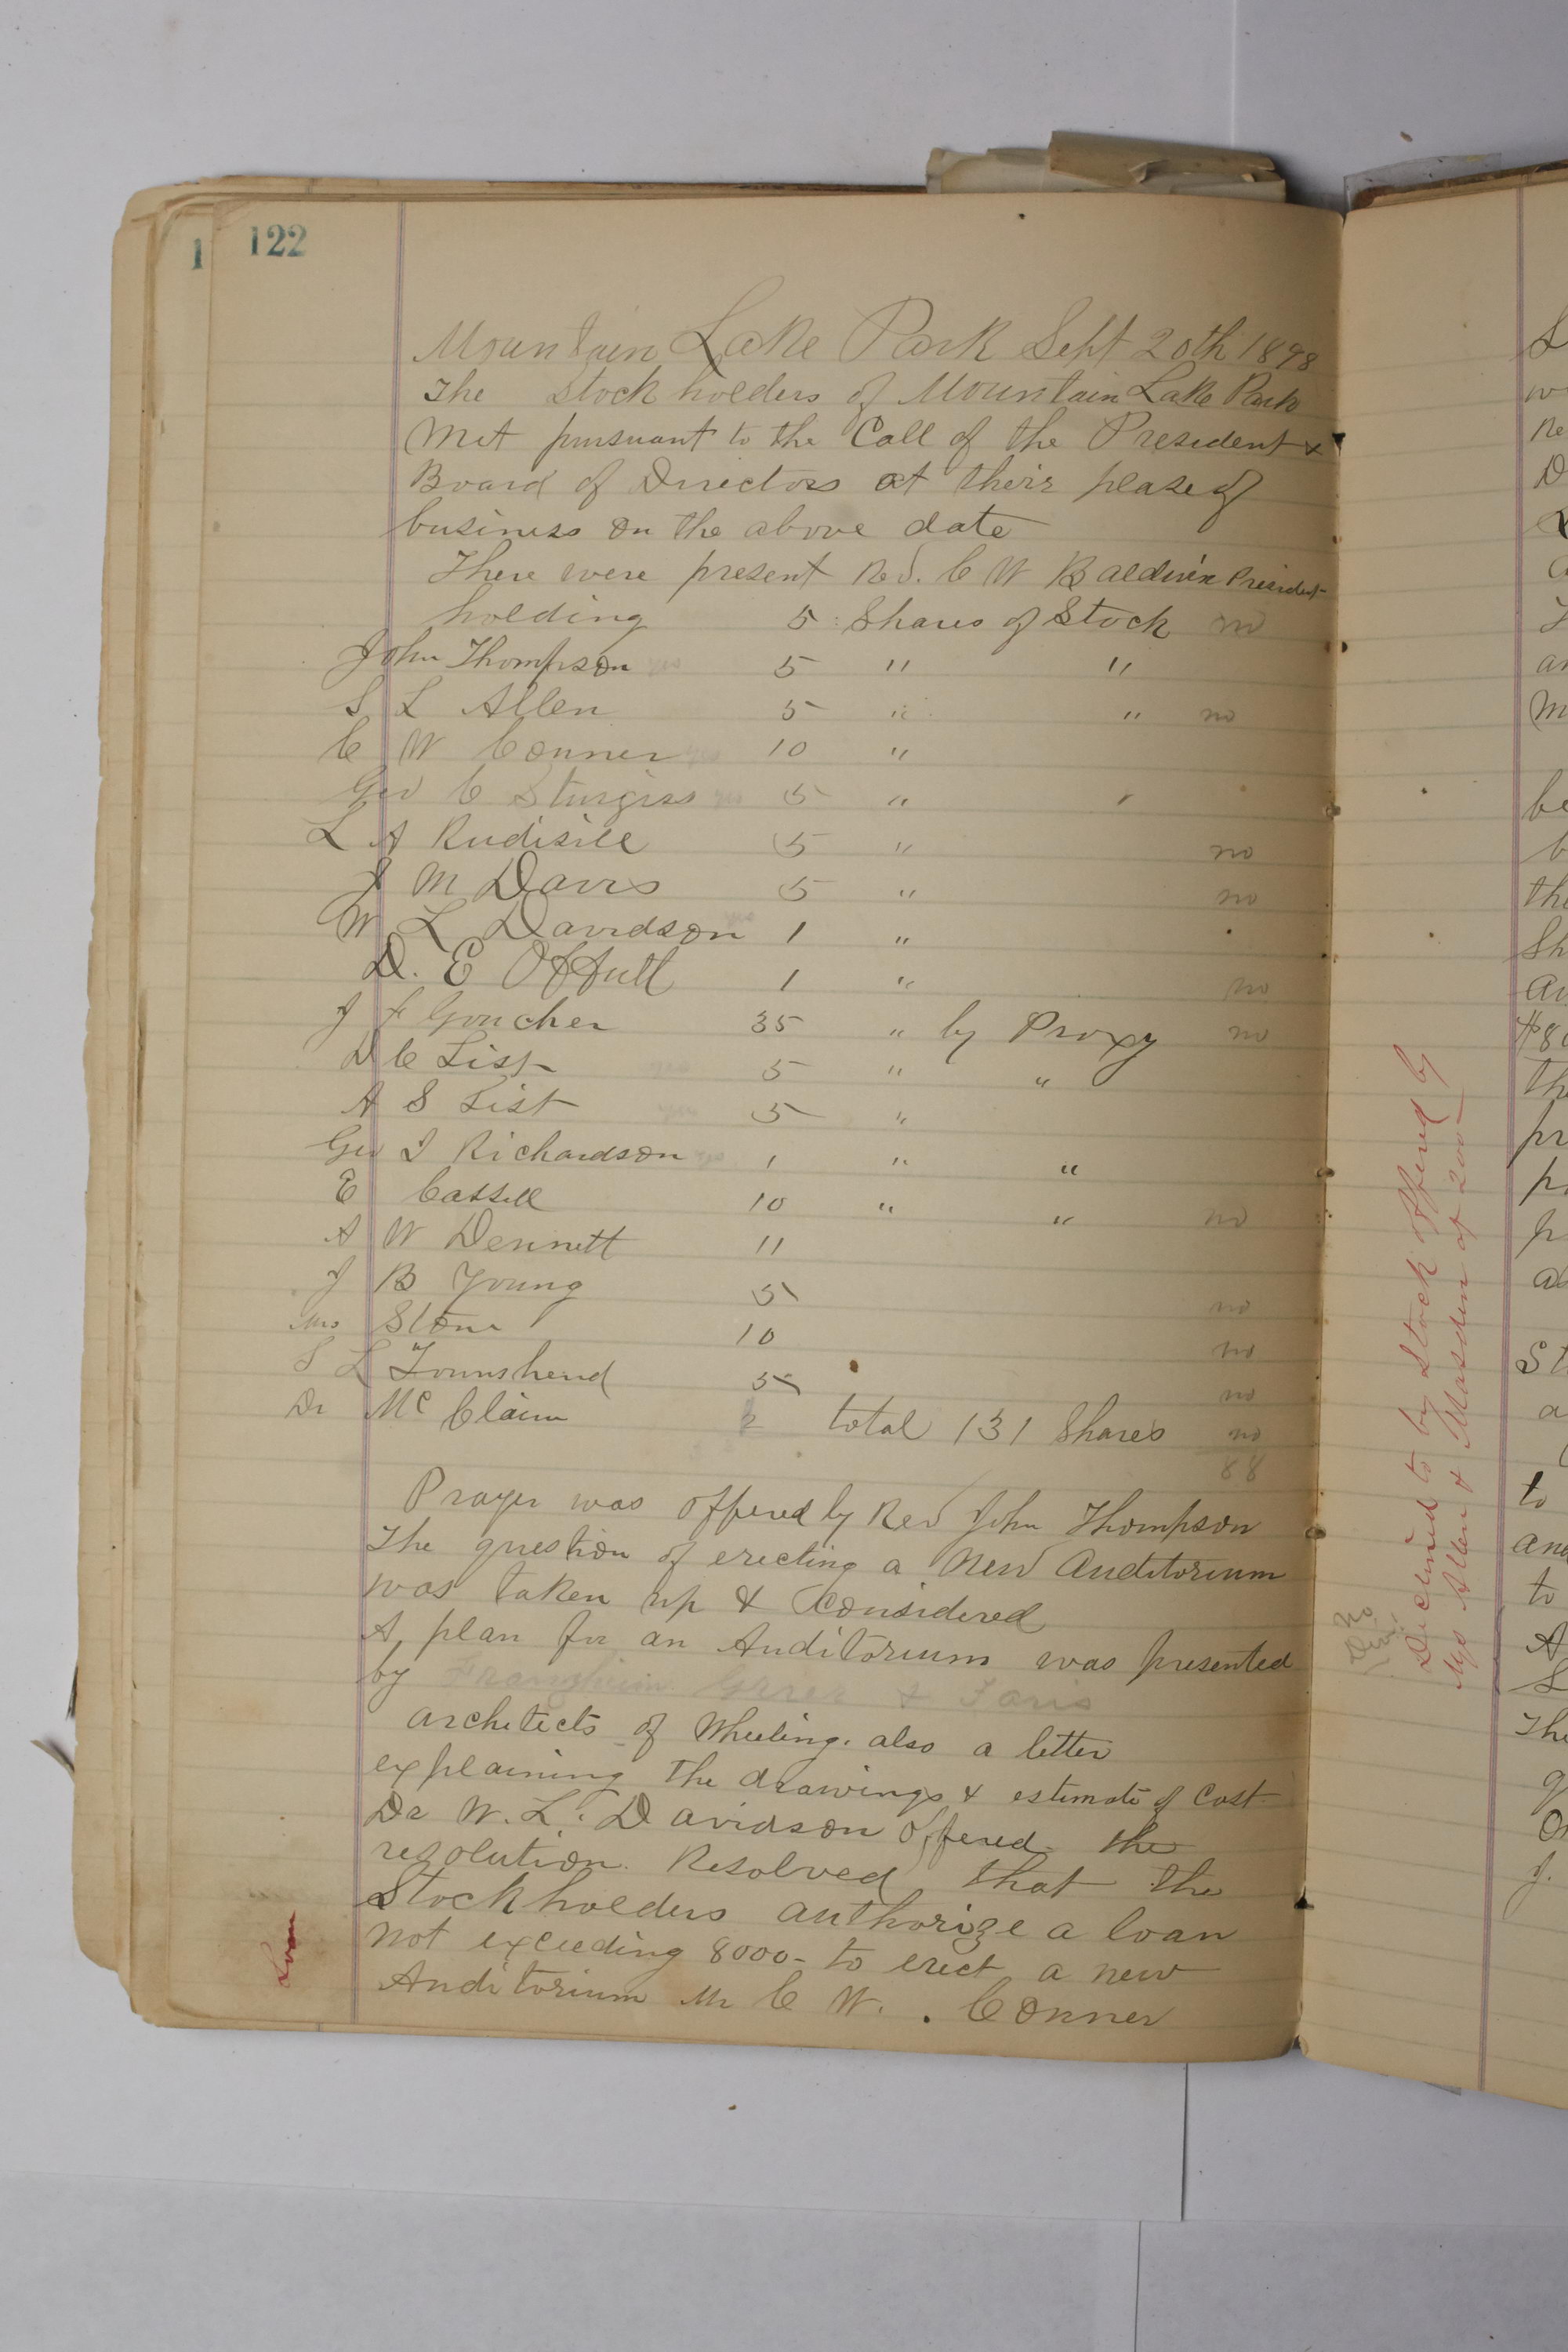 1 122
Mountain Lake Park Sept 20th 1898
The Stockholders of Mountain Lake Park
Met pursuant to the Call of the President &
Board of Directors at their plase of
business on the above date
There were present Rev. C W Baldwin President
holding 5 Shares of Stock no
John Thompson yes 5 " "
S L Allen 5 " " no
C W Conner yes 10 "
Geo C Sturgiss yes 5 " "
L A Rudisill 5 " no
J M Davis 5 " no
W L Davidson yes 1 "
D. E Offutt 1 " no
J F Goucher 35 " by Proxy no
D C List yes 5 " "
A S List yes 5 "
Geo I Richardson yes 1 " "
E Cassell 10 " " no
A W Dennett 11
J B Young 5 no
Mrs Stone 10 no
S L Townshend 5 no
Dr McClain 2 total 131 Shares no
88
Prayer was offered by Rev John Thompson
The question of erecting a New Auditorium
was taken up & Considered
A plan for an Auditorium was presented
by Franzheim Giesey & Faris
architects of Wheeling. also a letter
explaining the drawings & estimate of Cost
Dr W. L. Davidson offered the
resolution. Resolved that the
Stockholders authorize a loan
not exceeding 8000- to erect a new
Auditorium Mr C W. Conner
Loan
Declined to by Stock offered by
Mrs Allen & Marsden of 200-
No
L
w
Re
D
an
M
be
b
the
Sh
$80
the
pr
p
as
St
a
to
and
to
A
L
The
J.